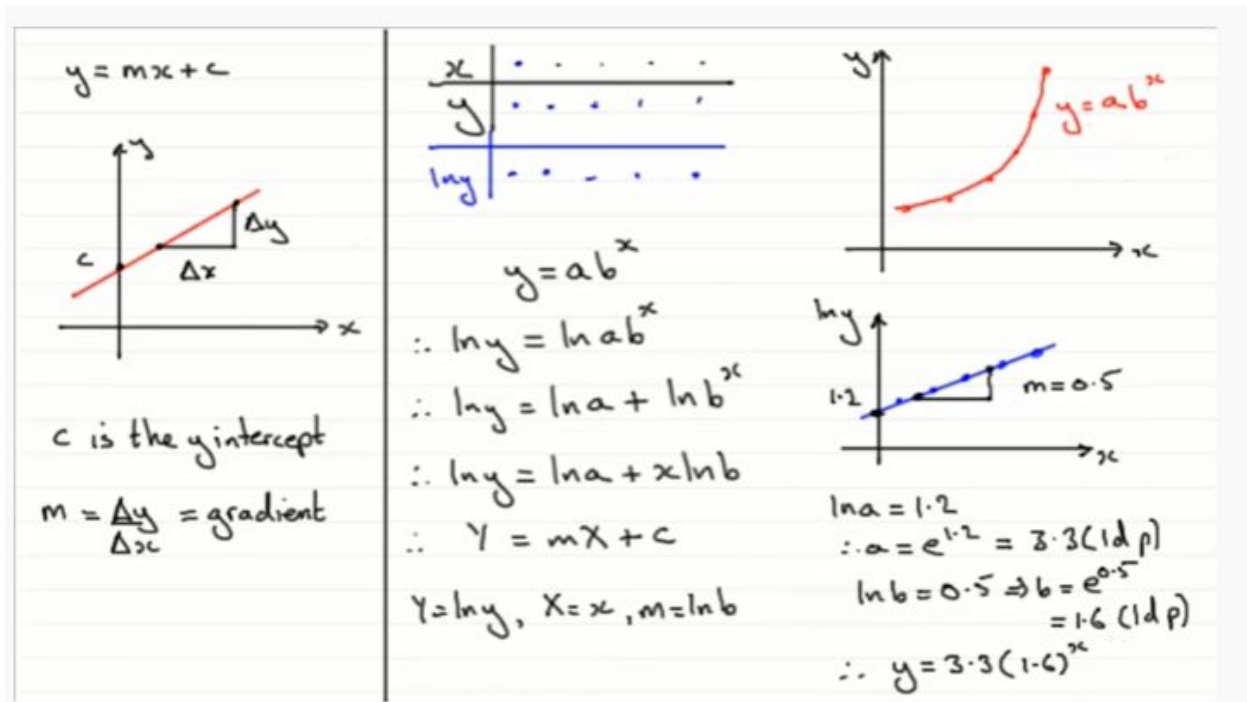 y = mx + c
y
c
Δy
Δx
x
c is the y intercept
m = Δy/Δx = gradient
x
y
ln y
y = ab^x
∴ ln y = ln ab^x
∴ ln y = ln a + ln b^x
∴ ln y = ln a + x ln b
∴ Y = mX + c
Y = ln y, X = x, m = ln b
y
y = ab^x
x
ln y
1.2
m = 0.5
x
ln a = 1.2
∴ a = e^1.2 = 3.3 (1dp)
ln b = 0.5 ⇒ b = e^0.5
= 1.6 (1dp)
∴ y = 3.3(1.6)^x